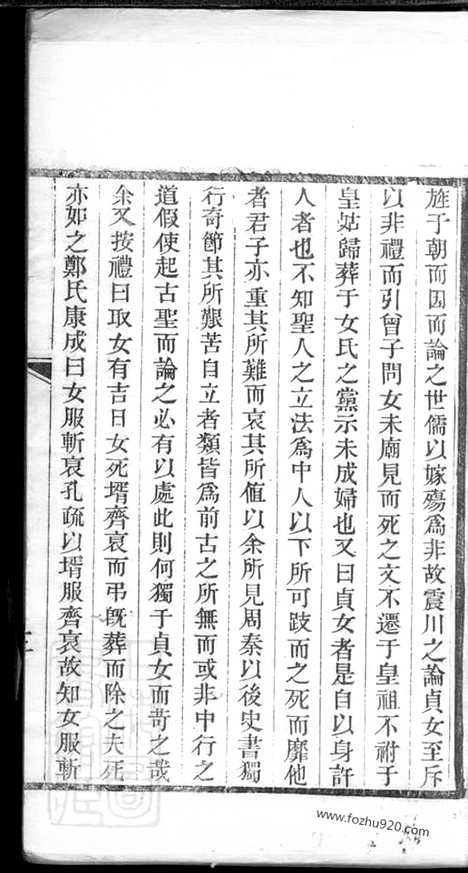 旌于朝而因而論之世儒以嫁殤爲非故震川之論貞女至斥
以非禮而引曾子問女未廟見而死之文不遷于皇祖不祔于
皇姑歸葬于女氏之黨示未成婦也又曰貞女者是自以身許
人者也不知聖人之立法爲中人以下所可跂而之死而靡他
者君子亦重其所難而哀其所值以余所見周秦以後史書獨
行奇節其所艱苦自立者類皆爲前古之所無而或非中行之
道假使起古聖而論之必有以處此則何獨于貞女而苛之哉
余又按禮曰取女有吉日女死壻齊衰而弔旣葬而除之夫死
亦如之鄭氏康成曰女服斬衰孔疏以壻服齊衰故知女服斬
www.fozhu920.com